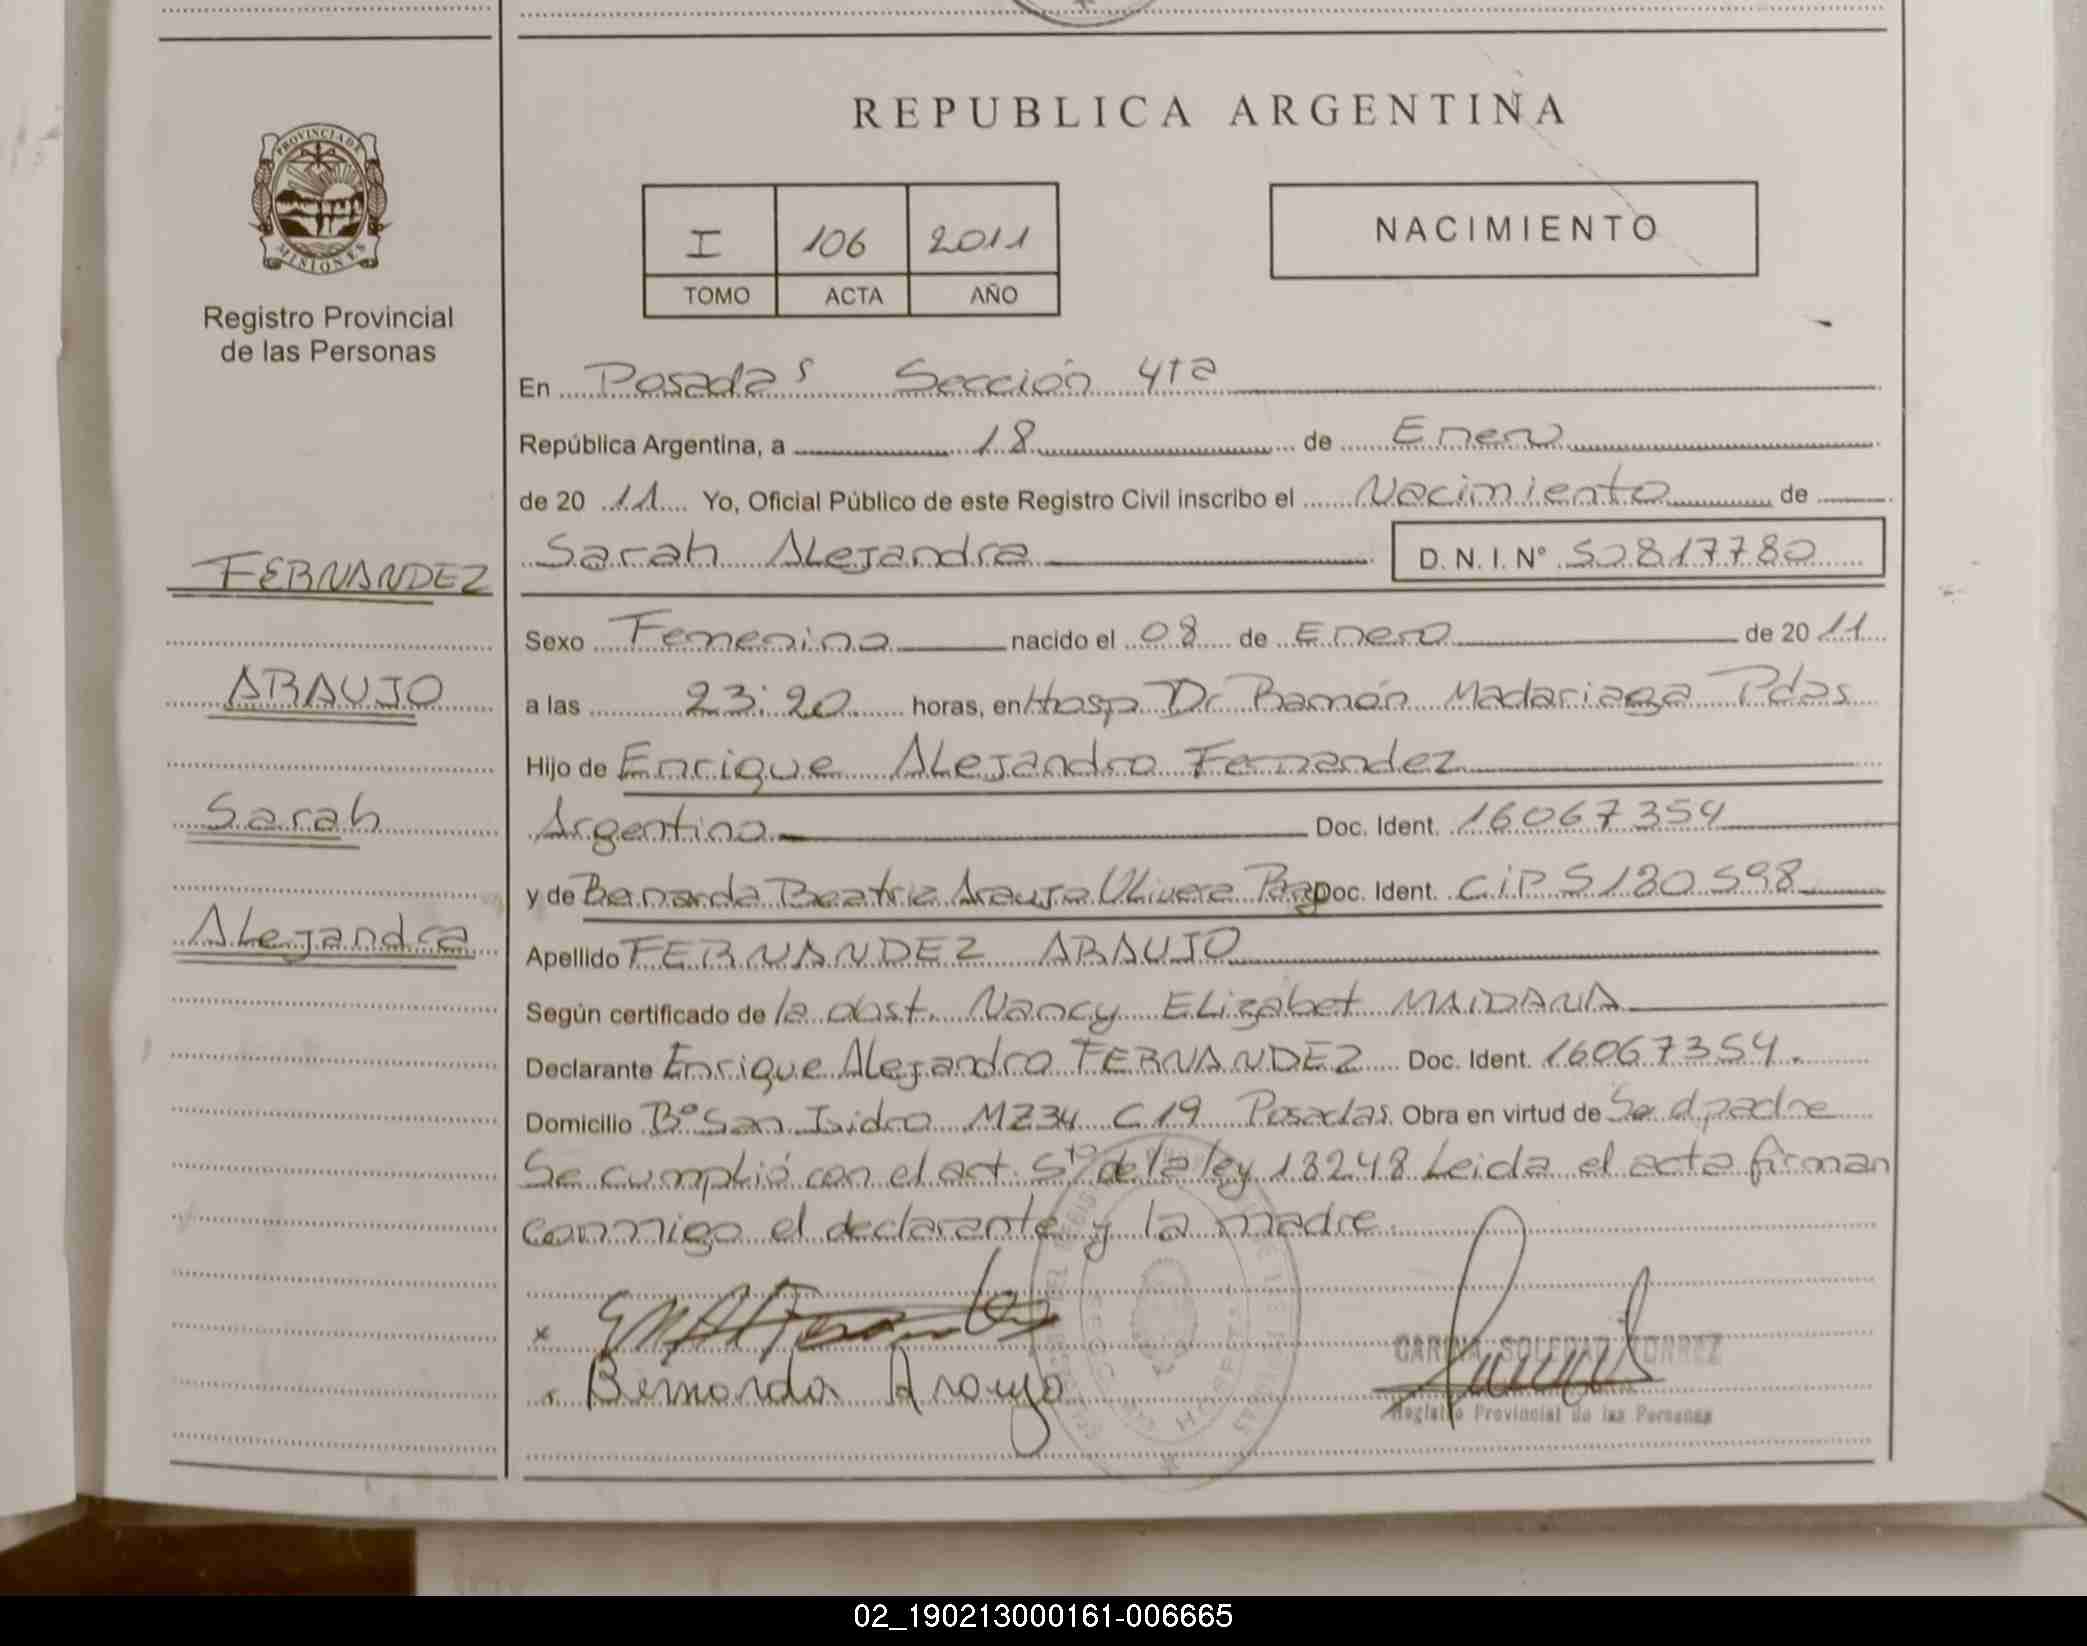 REPUBLICA ARGENTINA
PROVINCIA DE
MISIONES
Registro Provincial
de las Personas
I 106 2011
TOMO ACTA AÑO
NACIMIENTO
En Posadas Sección 4ta
República Argentina, a 18 de Enero
de 20 11 Yo, Oficial Público de este Registro Civil inscribo el Nacimiento de
Sarah Alejandra D. N. I. N° 50817780
FERNANDEZ
ARAUJO
Sarah
Alejandra
Sexo Femenino nacido el 08 de Enero de 20 11
a las 23:20 horas, en Hosp Dr Ramón Madariaga Pdas
Hijo de Enrique Alejandro Fernandez
Argentino Doc. Ident. 16067354
y de Bernarda Beatriz Araujo Olivera Parag Doc. Ident. CIP 5180598
Apellido FERNANDEZ ARAUJO
Según certificado de la obst. Nancy Elizabet MAIDANA
Declarante Enrique Alejandro FERNANDEZ Doc. Ident. 16067354.
Domicilio B° San Isidro MZ34 C19 Posadas Obra en virtud de Se d padre
Se cumplió con el art. 5to de la ley 18248 Leida el acta firman
conmigo el declarante y la madre.
x
Bernarda Araujo
CARINA SOLEDAD TORREZ
Registro Provincial de las Personas
02_190213000161-006665